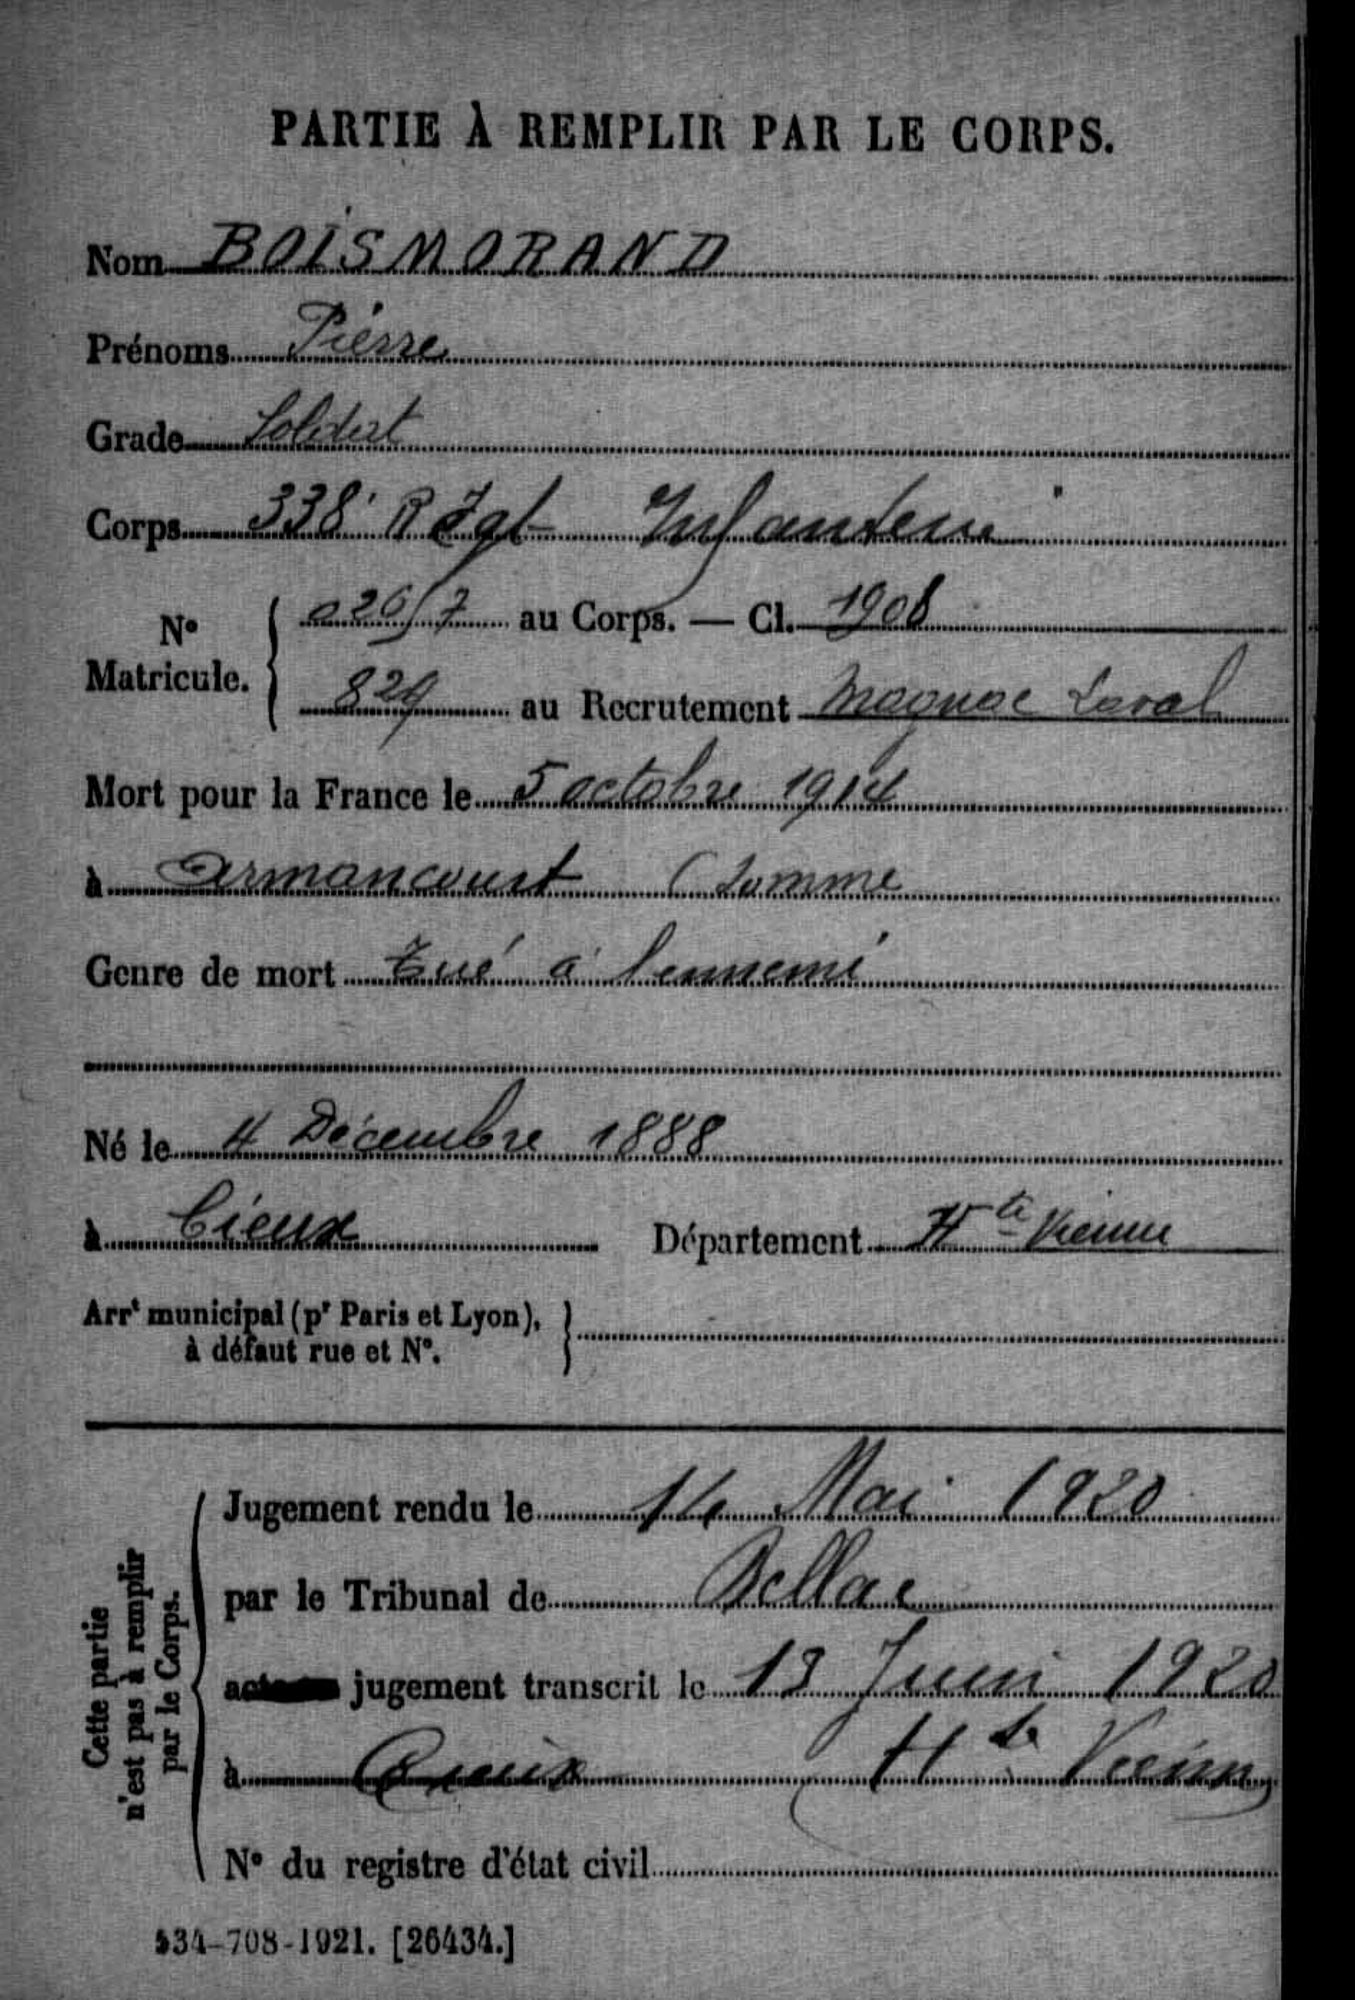 PARTIE À REMPLIR PAR LE CORPS.
Nom BOISMORAND
Prénoms Pierre
Grade Soldat
Corps 338e Régt Infanterie
No Matricule. { 02617 au Corps. — Cl. 1908
829 au Recrutement Magnac Laval
Mort pour la France le 5 octobre 1914
à Armancourt (Somme
Genre de mort Tué à l'ennemi
Né le 4 Décembre 1888
à Cieux Département Hte Vienne
Arrt municipal (pr Paris et Lyon), à défaut rue et No. }
Cette partie n'est pas à remplir par le Corps.
Jugement rendu le 14 Mai 1920
par le Tribunal de Bellac
jugement transcrit le 13 Juin 1920
à Cieux Hte Vienne
No du registre d'état civil
534-708-1921. [26434.]